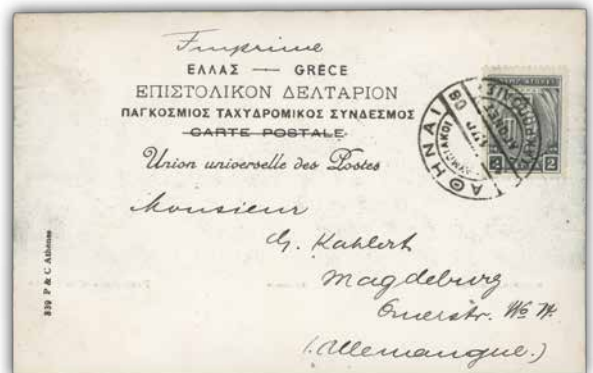 Imprimé
ΕΛΛΑΣ — GRÈCE
ΕΠΙΣΤΟΛΙΚΟΝ ΔΕΛΤΑΡΙΟΝ
ΠΑΓΚΟΣΜΙΟΣ ΤΑΧΥΔΡΟΜΙΚΟΣ ΣΥΝΔΕΣΜΟΣ
CARTE POSTALE
Union universelle des Postes
ΑΘΗΝΑΙ
2 2
Monsieur
G. Kahlert
Magdeburg
No
(Allemangue.)
339 P & C Athenes